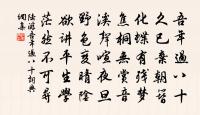 吾年過八十
久已棄朝簪
化蝶有殘夢
焦桐無賞音
溪聲喧夜旦
野色變晴陰
欲講平生學
茫然不可尋
陸游吾年過八十詞典
調集